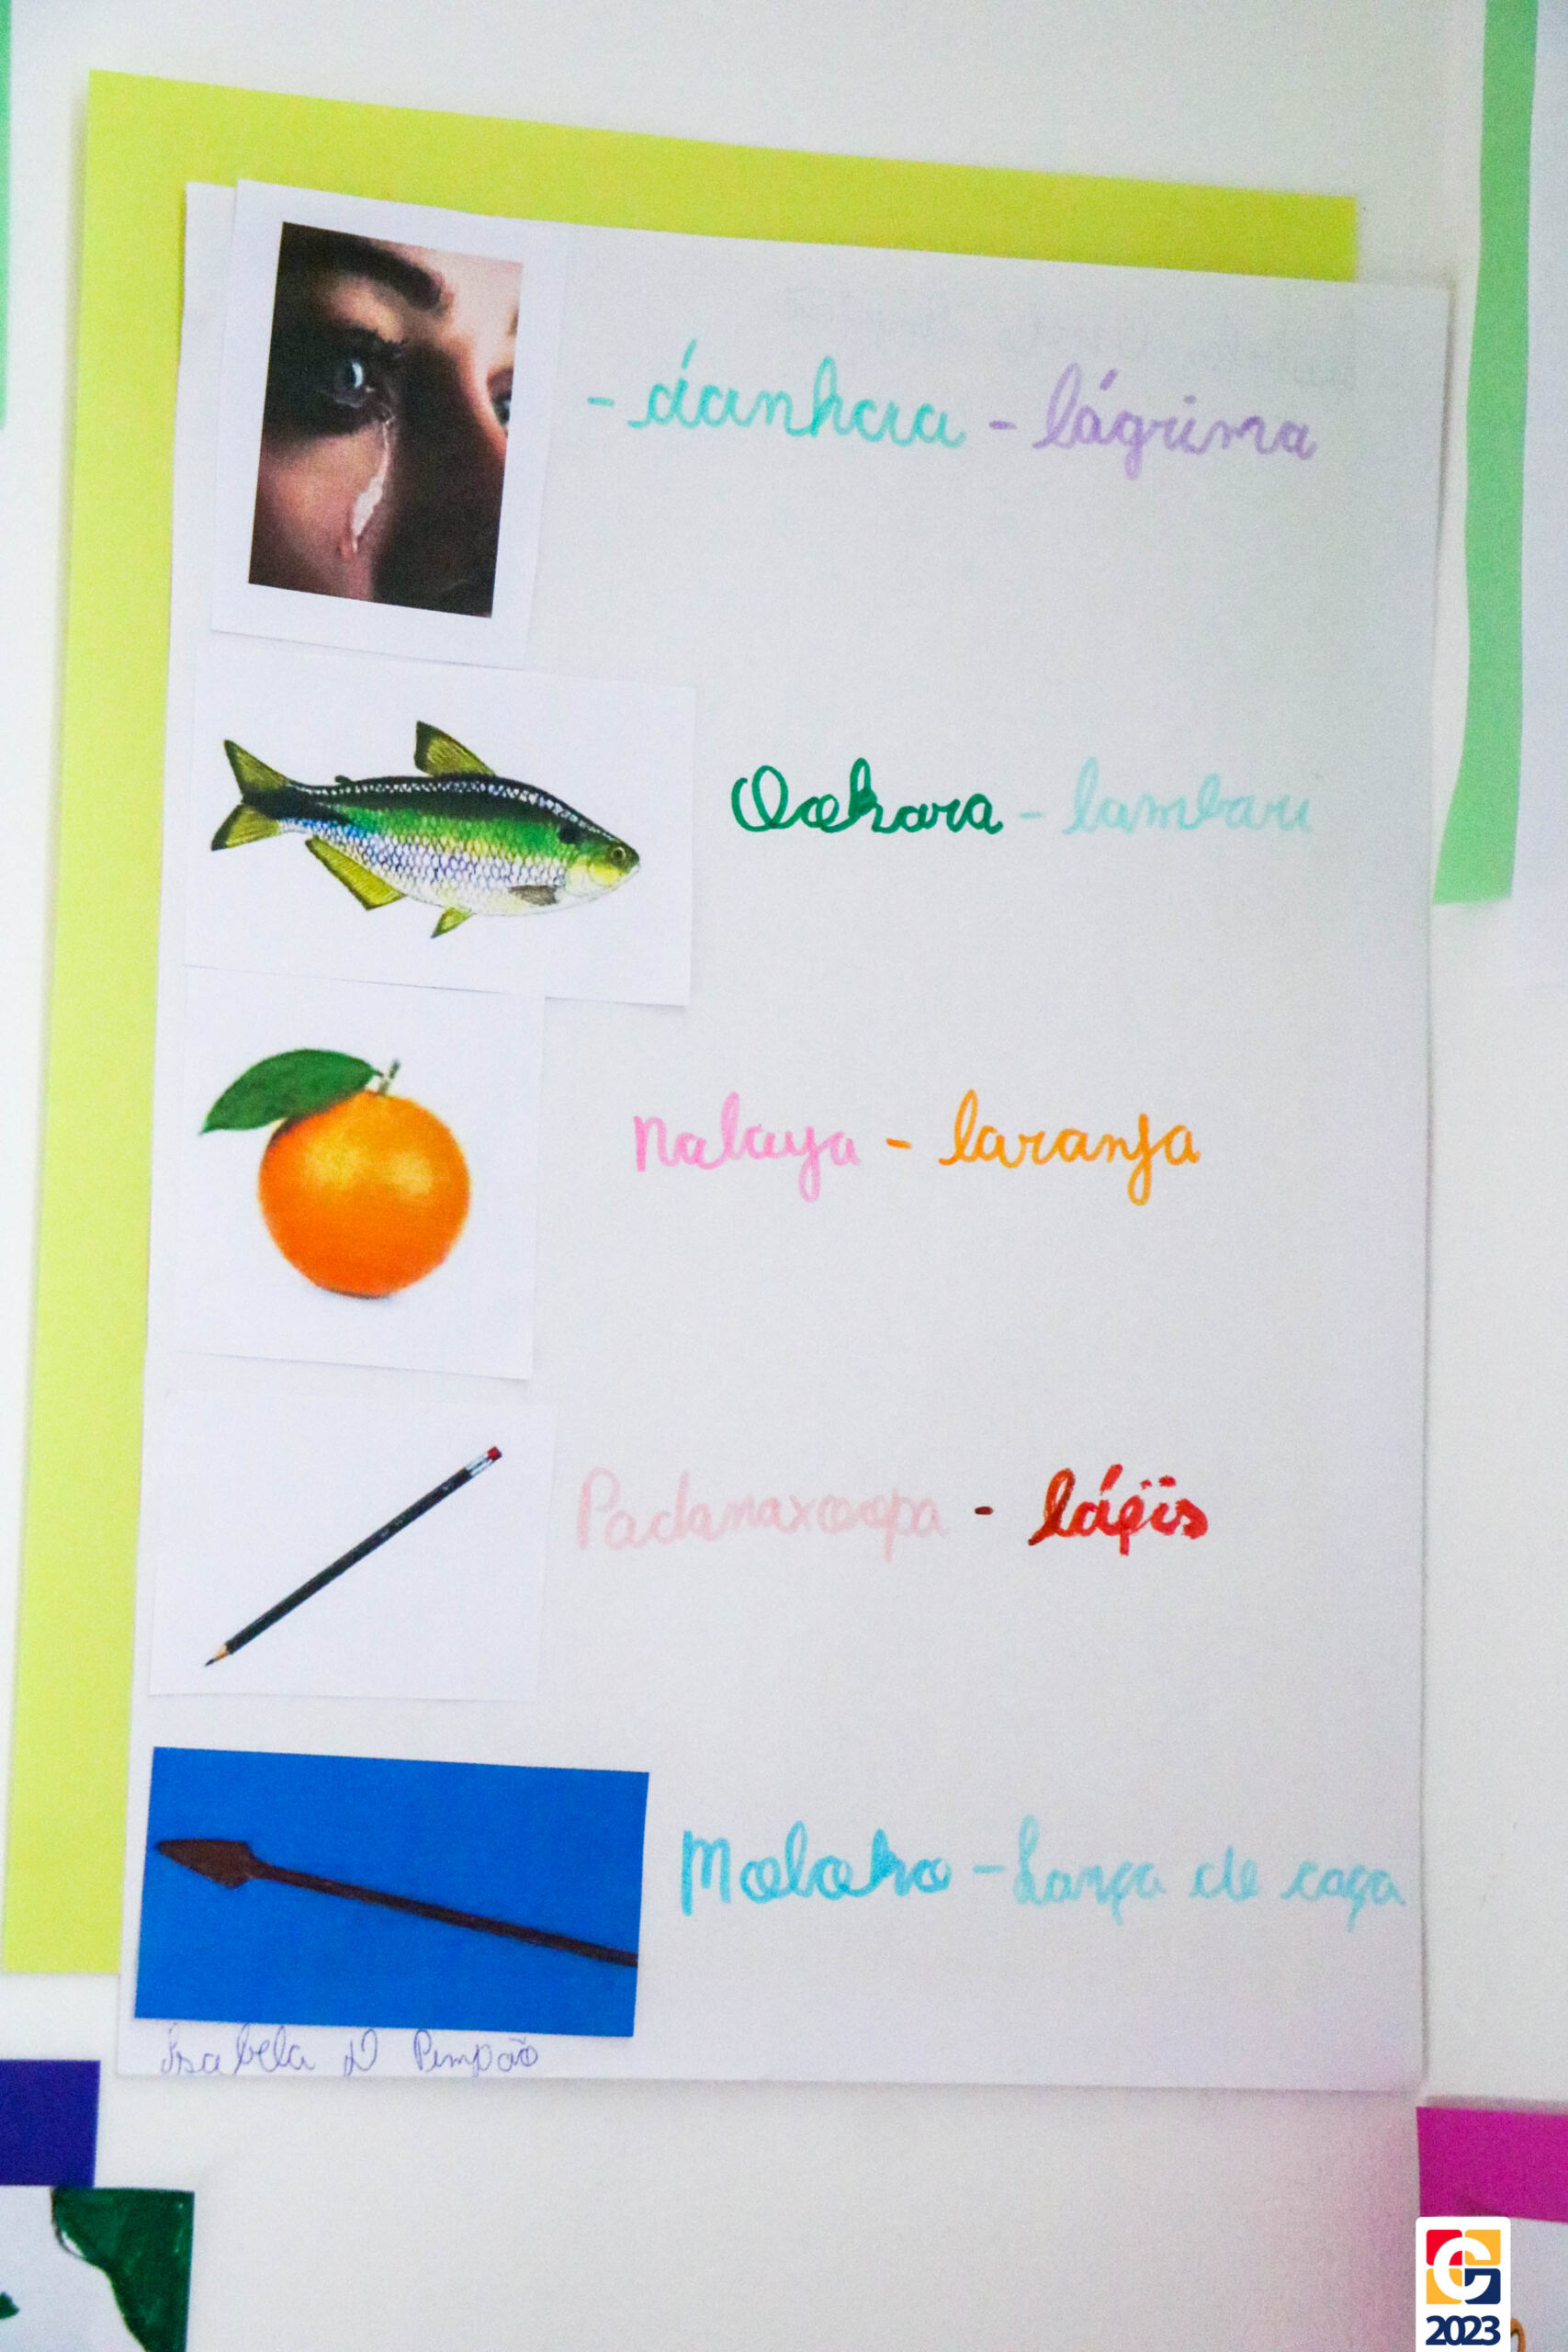 - díanhaia - lágrima
Ookora - lambari
nalaya - laranja
Padanaxoopa - lápis
Moloko - Lança de caça
Isabela D Pimpão
2023